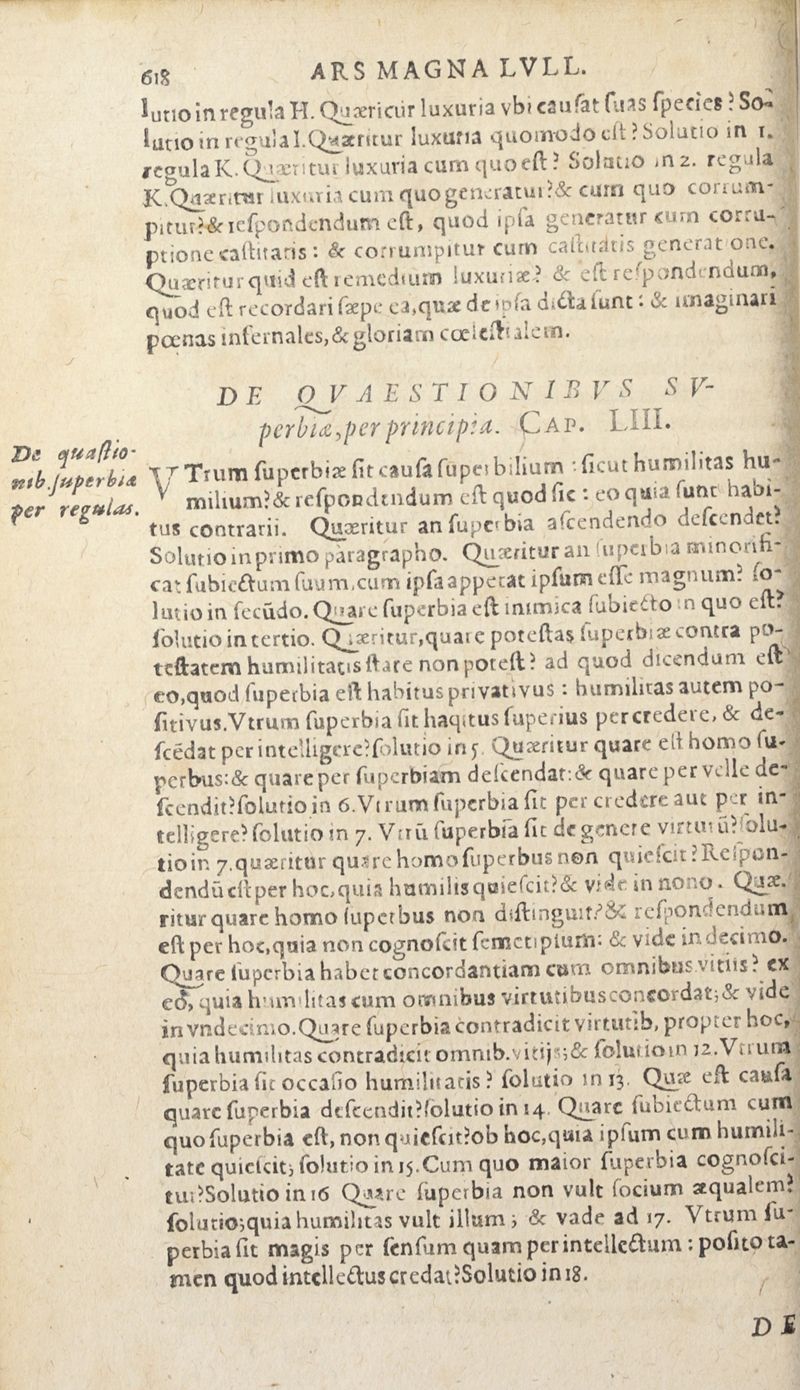 618 ARS MAGNA LVLL.
lutio in regula H. Quæritur luxuria vbi cauſat ſuas ſpecies? So-
lutio in regula I. Quæritur luxuria quomodo eſt? Solutio in 1.
regula K. Quæritur luxuria cum quo eſt? Solutio in 2. regula
K. Quæritur luxuria cum quo generatur? & cum quo corrum-
pitur? & reſpondendum eſt, quod ipſa generatur cum corru-
ptione caſtitatis: & corrumpitur cum caſtitatis generatione.
Quæritur quid eſt remedium luxuriæ? & eſt reſpondendum,
quod eſt recordari ſæpe ea, quæ de ipſa dicta ſunt: & imaginari
pœnas infernales, & gloriam cœleſtialem.
DE QVAESTIONIBVS SV-
perbiæ, per principia. CAP. LIII.
De quæſtio-
nib. ſuperbiæ
per regulas.
VTrum ſuperbiæ ſit cauſa ſuperbilium: ſicut humilitas hu-
milium? & reſpondendum eſt quod ſic: eo quia ſunt habi-
tus contrarii. Quæritur an ſuperbia aſcendendo deſcendet?
Solutio in primo paragrapho. Quæritur an ſuperbia minorifi-
cat ſubiectum ſuum, cum ipſa appetat ipſum eſſe magnum? ſo-
lutio in ſecũdo. Quare ſuperbia eſt inimica ſubiecto in quo eſt?
ſolutio in tertio. Quæritur, quare poteſtas ſuperbiæ contra po-
teſtatem humilitatis ſtare non poteſt? ad quod dicendum eſt
eo, quod ſuperbia eſt habitus privativus: humilitas autem po-
ſitivus. Vtrum ſuperbia ſit haqitus ſuperius per credere, & de-
ſcẽdat per intelligere? ſolutio in 5. Quæritur quare eſt homo ſu-
perbus: & quare per ſuperbiam deſcendat: & quare per velle de-
ſcendit? ſolutio in 6. Vtrum ſuperbia ſit per credere aut per in-
telligere? ſolutio in 7. Vtrũ ſuperbia ſit de genere virtutũ? ſolu-
tio in 7. quæritur quare homo ſuperbus non quieſcit? Reſpon-
dendũ eſt per hoc, quia humilis quieſcit? & vide in nono. Quæ-
ritur quare homo ſuperbus non diſtinguit? & reſpondendum
eſt per hoc, quia non cognoſcit ſemetipſum: & vide in decimo.
Quare ſuperbia habet concordantiam cum omnibus vitiis? ex
eo, quia humilitas cum omnibus virtutibus concordat; & vide
in vndecimo. Quare ſuperbia contradicit virtutib, propter hoc,
quia humilitas contradicit omnib. vitijs; & ſolutio in 12. Vtrum
ſuperbia ſit occaſio humilitatis? ſolutio in 13. Quæ eſt cauſa
quare ſuperbia deſcendit? ſolutio in 14. Quare ſubiectum cum
quo ſuperbia eſt, non quieſcit? ob hoc, quia ipſum cum humili-
tate quieſcit; ſolutio in 15. Cum quo maior ſuperbia cognoſci-
tur? Solutio in 16 Quare ſuperbia non vult ſocium æqualem?
ſolutio; quia humilitas vult illum; & vade ad 17. Vtrum ſu-
perbia ſit magis per ſenſum quam per intellectum: poſito ta-
men quod intellectus credat? Solutio in 18.
DE